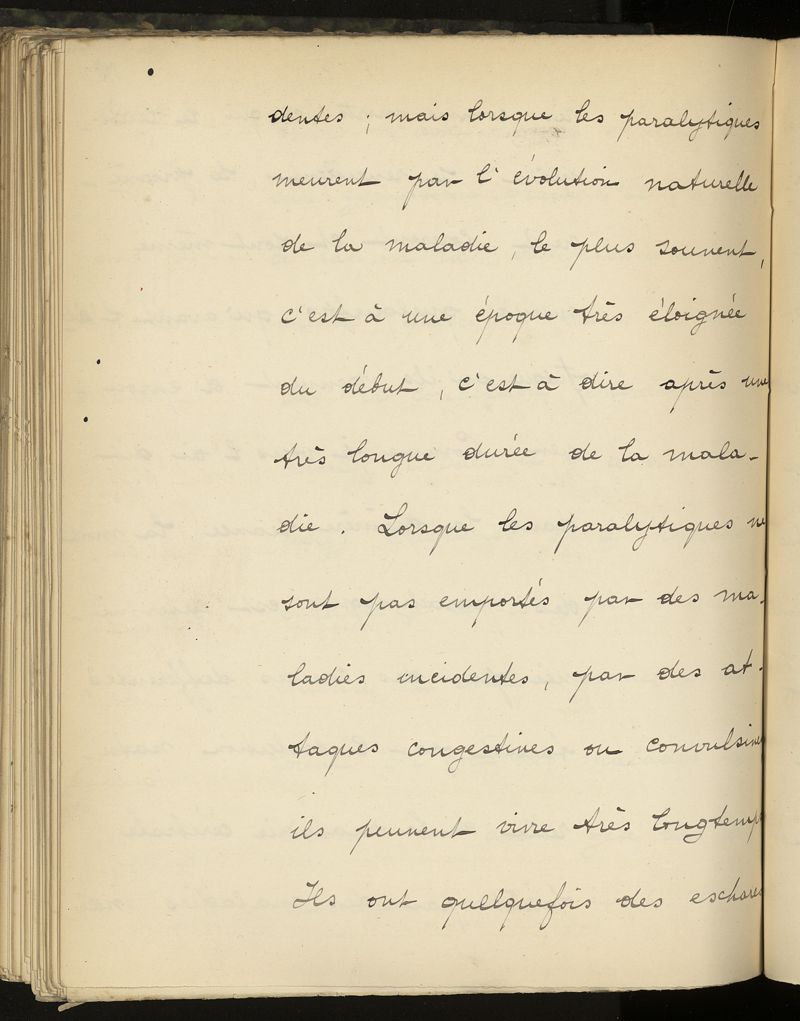 dentes ; mais lorsque les paralytiques
meurent par l'évolution naturelle
de la maladie, le plus souvent,
c'est à une époque très éloignée
du début, c'est à dire après une
très longue durée de la mala-
die. Lorsque les paralytiques ne
sont pas emportés par des ma-
ladies incidentes, par des at-
taques congestives ou convulsives
ils peuvent vivre très longtemps
Ils ont quelquefois des eschares